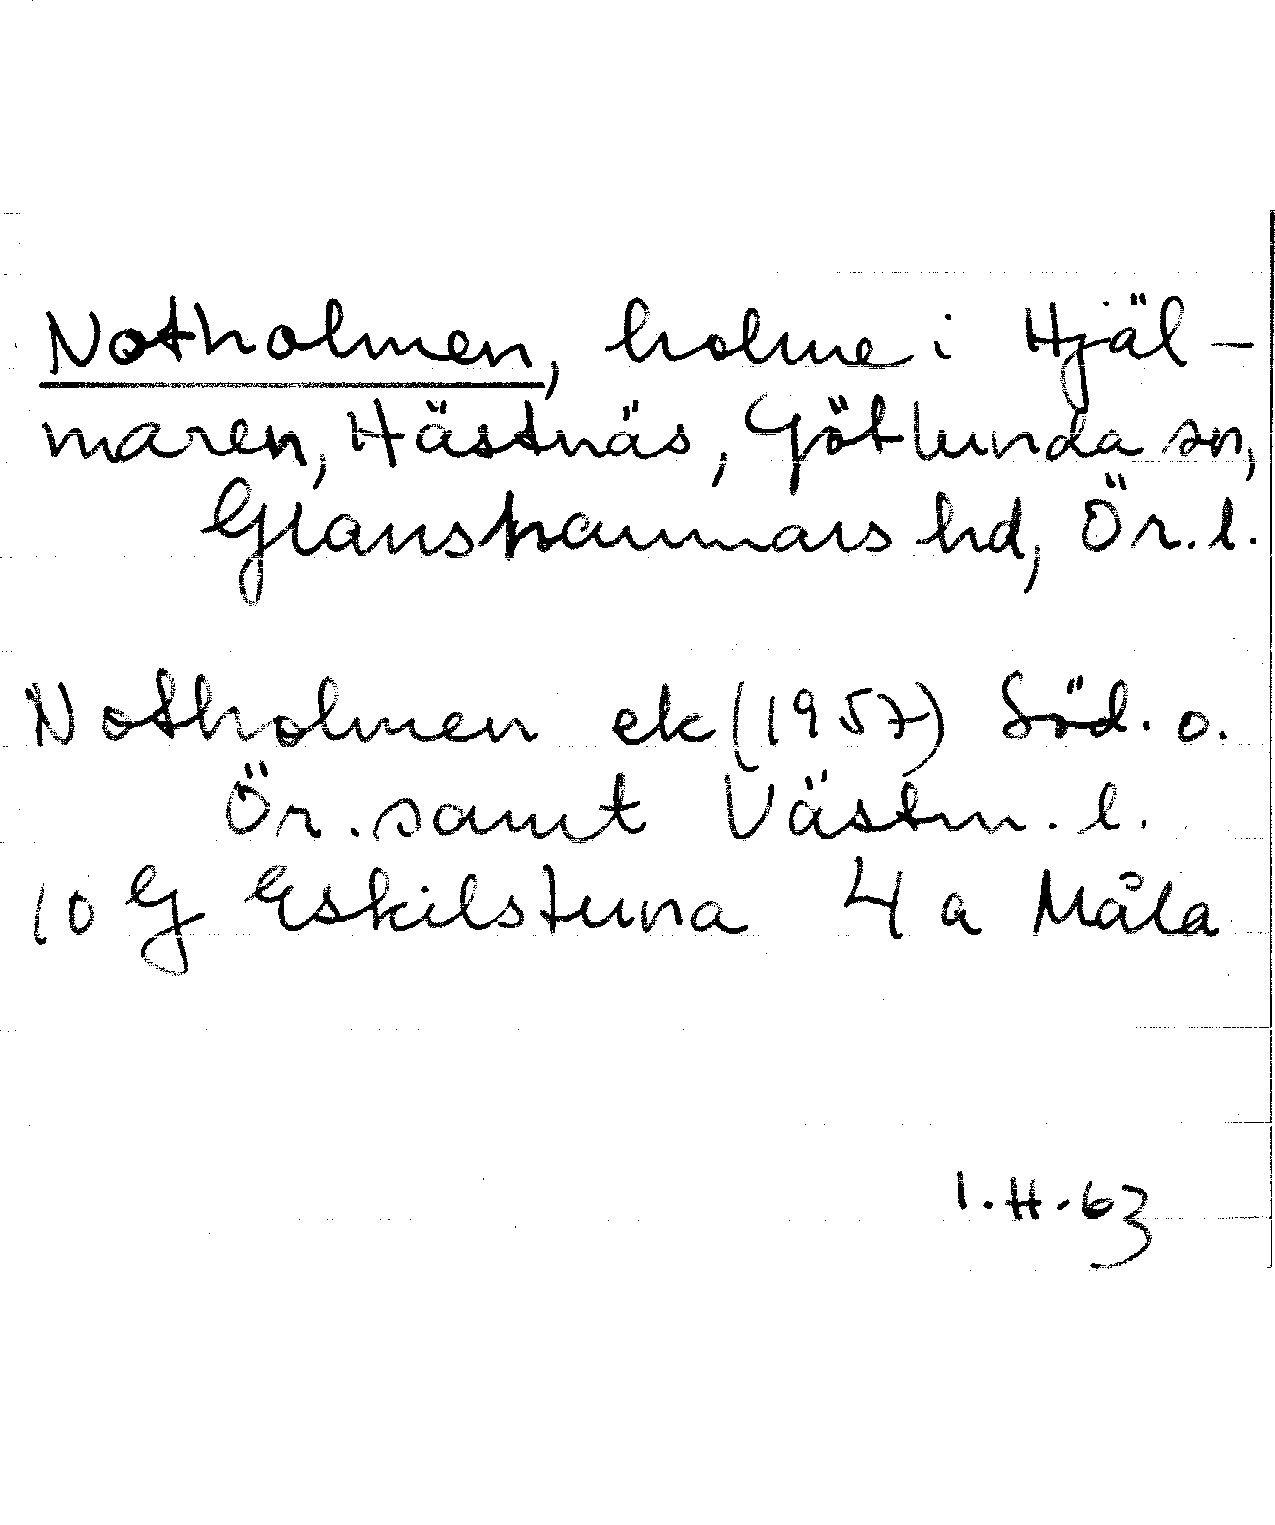 Notholmen, holme i Hjäl-
maren, Hästnäs, Götlunda sn,
Glanshammars hd, Ör. l.
Notholmen ek (1957) Söd. o.
Ör. samt Västm. l.
10 G Eskilstuna 4 a Måla
1.II.63